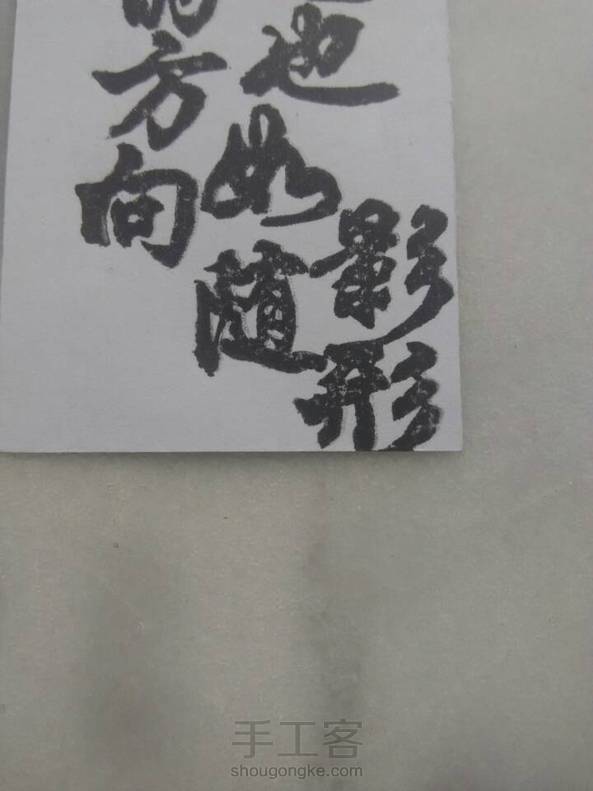 影形
也如随
的方向
手工客
shougongke.com